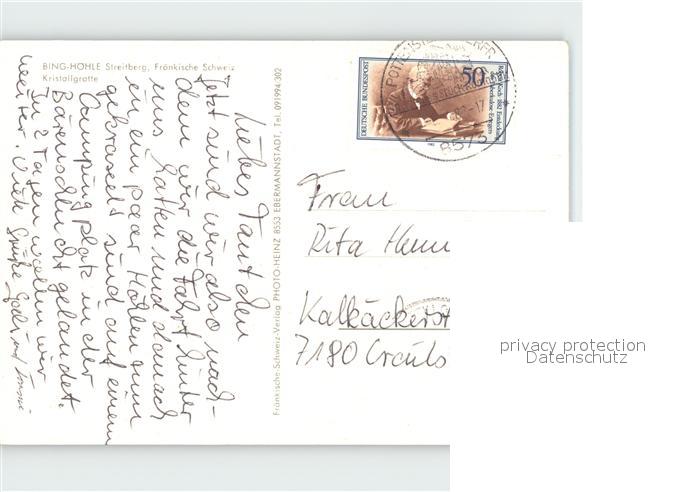 BING-HÖHLE Streitberg, Fränkische Schweiz
Kristallgrotte
Liebes Tantchen
Jetzt sind wir also nach-
dem wir die Fahrt hinter
uns hatten und danach
in ein paar Höhlen rum
gekraxelt sind auf einem
Campingplatz in der
Bärenschlucht gelandet.
In 2 Tagen wollen wir
weiter. Viele Grüße
Fränkische-Schweiz-Verlag PHOTO-HEINZ 8553 EBERMANNSTADT, Tel. 09194/302
DEUTSCHE BUNDESPOST
50
Robert Koch 1882 Entdeckung
des Tuberkulose-Erregers
1982
8573
Frau
Rita
Kalkäckerst
7180 Crails
privacy protection
Datenschutz